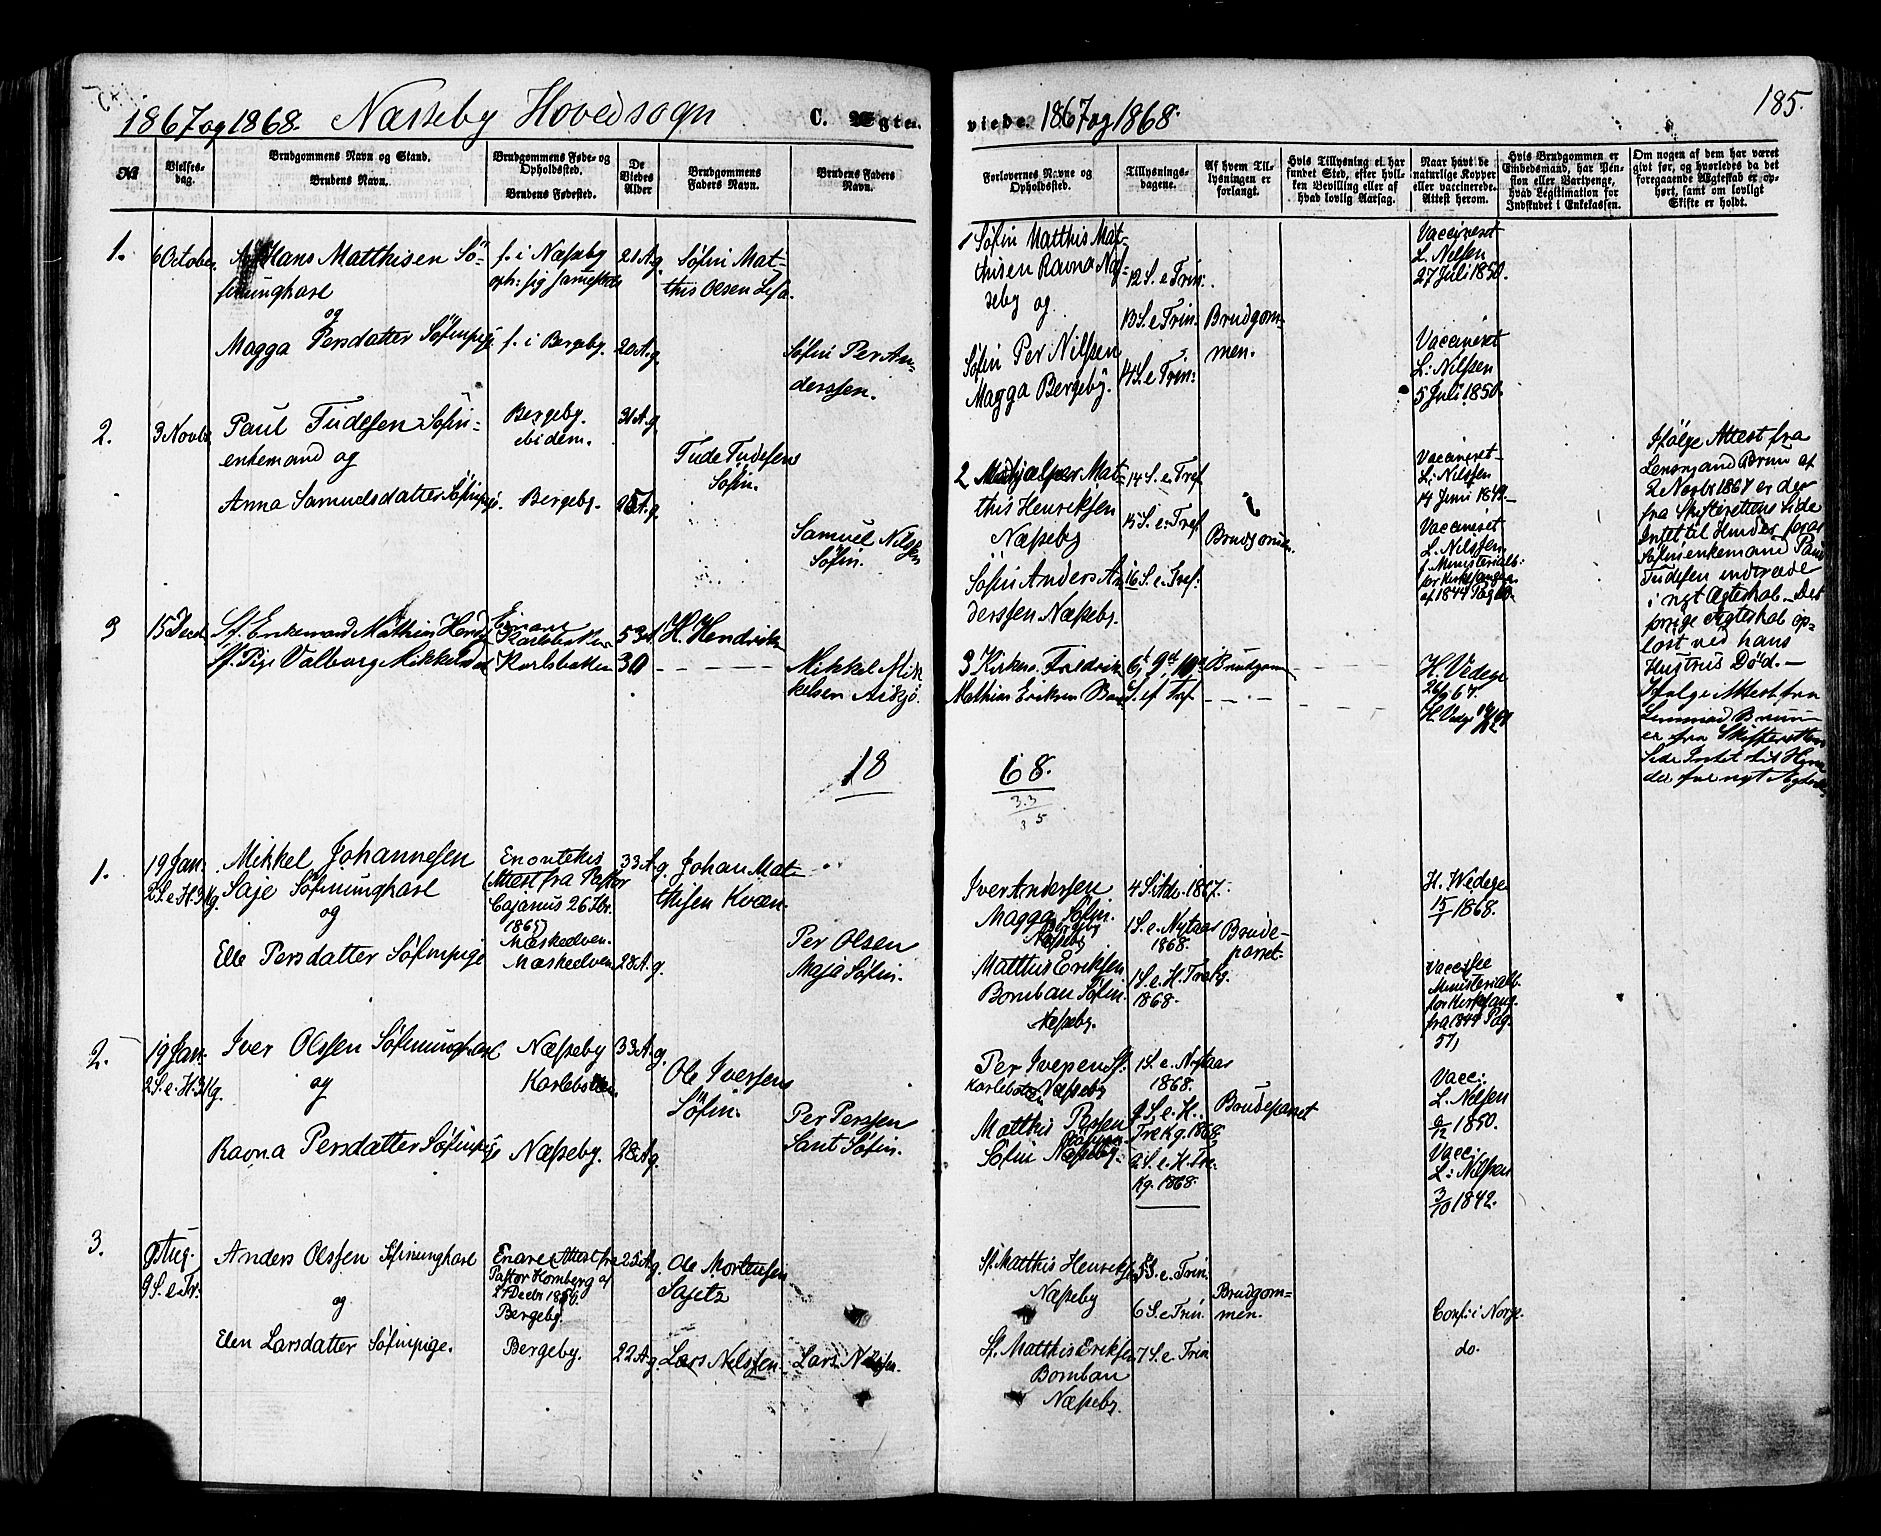 1867 og 1868. Næsseby Hovedsogn C. Ægte-
viede 1867 og 1868. 185.
No
Vielses-
dag.
Brudgommens Navn og Stand.
Brudens Navn.
Brudgommens Føde- og
Opholdssted.
Brudens Fødested.
De
Viedes
Alder
Brudgommens
Faders Navn.
Brudens Faders
Navn.
Forlovernes Navne og
Opholdssted.
Tillysnings-
dagene.
Af hvem Til-
lysningen er
forlangt.
Hvis Tillysning ei har
fundet Sted, efter hvil-
ken Bevilling eller af
hvad lovlig Aarsag.
Naar havt de
naturlige Kopper
eller vaccinerede.
Attest herom.
Hvis Brudgommen er
Embedsmand, har Pen-
sion eller Vartpenge,
hvad Legitimation for
Indskudet i Enkekassen.
Om nogen af dem har været
gift før, og hvorledes da det
foregaaende Ægteskab er op-
hørt, samt om lovligt
Skifte er holdt.
1.
6 October
Hans Matthisen Sö-
finungkarl
og
Magga Persdatter Söfinpige
f. i Næsseby
f. i Bergeby.
21 A. g.
20 A. g.
Söfin Mat-
this Olsen
Söfin Per An-
derssen.
1 Söfin Matthis Mat-
thisen Ravna Næs-
seby og
Söfin Per Nilssen
Magga Bergeby.
12 S. e Trin.
13 S. e Trin.
14 S. e Trin.
Brudgom-
men.
Vaccineret
L. Nilsen
27 Juli 1850.
Vaccineret
L: Nilssen
5 Juli 1850.
2.
3 Novbr
Paul Tudesen Söfin-
enkemand og
Anna Samuelsdatter Söfinpige.
Bergeby.
ibidem.
Bergeby.
31 A. g.
25 A. g.
Tude Tudesen
Söfin.
Samuel Nilssen
Söfin.
2 Mat-
this Henriksen
Næsseby
Söfin Anders An-
derssen Næsseby.
14 S. e. Tref
15 S. e. Tref.
16 S. e. Tref.
Brudgommen.
Vaccineret
L: Nilssen
14 Juni 1842.
Vaccineret
L. Nilssen
f. Ministerialb:
for Kirkesangere
af 1844 Pag 60.
Ifølge Attest fra
Lensmand Brun af
2 Novbr 1867 er der
fra Skifterettens Side
Intet til Hinder for at
Söfinenkemand Paul
Tudesen indtræde
i nyt Ægteskab. Det
forrige Ægteskab op-
löst ved hans
Hustrus Död.
3
15 Decb
Sf. Enkemand Mathis Hendr
Sf. Pige Valborg Mikkelsd
Enare
Karlsbotten
Karlsbotten
53
30
H. Hendriks
Mikkel Mik
kelsen
3 Kirkes. Fredrik
Mathias Eriksen
6t 9d 10d
S. ef Tref
Brudgom
H. Vedege
H. Vedege
Ifølge Attest fra
Lensmand Bruun
er fra Skifterettens
Side Intet til Hin
der for nyt Ægtesk
18
68.
3.3
3 5
1.
19 Jan.
2 S. e. H. 3 Kg.
Mikkel Johannesen
Saje Söfinungkarl
og
Elle Persdatter Söfinpige
Enontekis
(Attest fra Pastor
Cajanus 26 Fbr.
1865)
Mæskedven.
Mæskedven
33 A. g.
28 A. g.
Johan Mat-
thisen Kvæn.
Per Olsen
Maja Söfin.
Iver Andersen
Magga Söfin.
Bergeby
Næsseby
Matthis Eriksen
Bomban Söfin.
Næsseby.
4 S. Adv. 1867.
1 S. e. Nytaar
1868.
1 S. e. H. Tre Kg.
1868.
Brude-
parret.
H. Wedege
15/1 1868.
Vacc. see
Ministerialb.
for Kirkesang.
fra 1844 Pag.
57,
2.
19 Jan.
2 S. e. H. 3 Kg.
Iver Olssen Söfinungkarl
og
Ravna Persdatter Söfinpige
Næsseby
Karlebotten
Næsseby.
33 A. g.
28 A. g.
Ole Iversen
Söfin.
Per Perssen
Sant Söfin.
Per Iversen Sf.
Karlebotn Næsseby
Matthis Perssen
Söfin Næsseby.
1 S. e. Nytaar
1868.
1 S. e. H.
Tre Kg. 1868
2 S. e. H. Tre
Kg. 1868.
Brudeparret
Vacc:
L. Nilsen
9/12 1850.
Vacc.
L: Nilssen
3/10 1842.
3.
9 Aug.
9 S. e Tr.
Anders Olssen Söfinungkarl
og
Elen Larsdatter Söfinpige.
Enare (Attest fra
Pastor Hornberg af
Bergeby.
Bergeby.
25 A. g.
22 A. g.
Ole Mortensen
Sajets
Lars Nilssen
Lars Nilssen.
Sf. Matthis Henriksen
Næsseby
Sf. Matthis Eriksen
Bomban
Næsseby.
5 S. e. Trin.
6 S. e Trin.
7 S. e Trin
Brudgom-
men.
Conf: i Norge.
do.